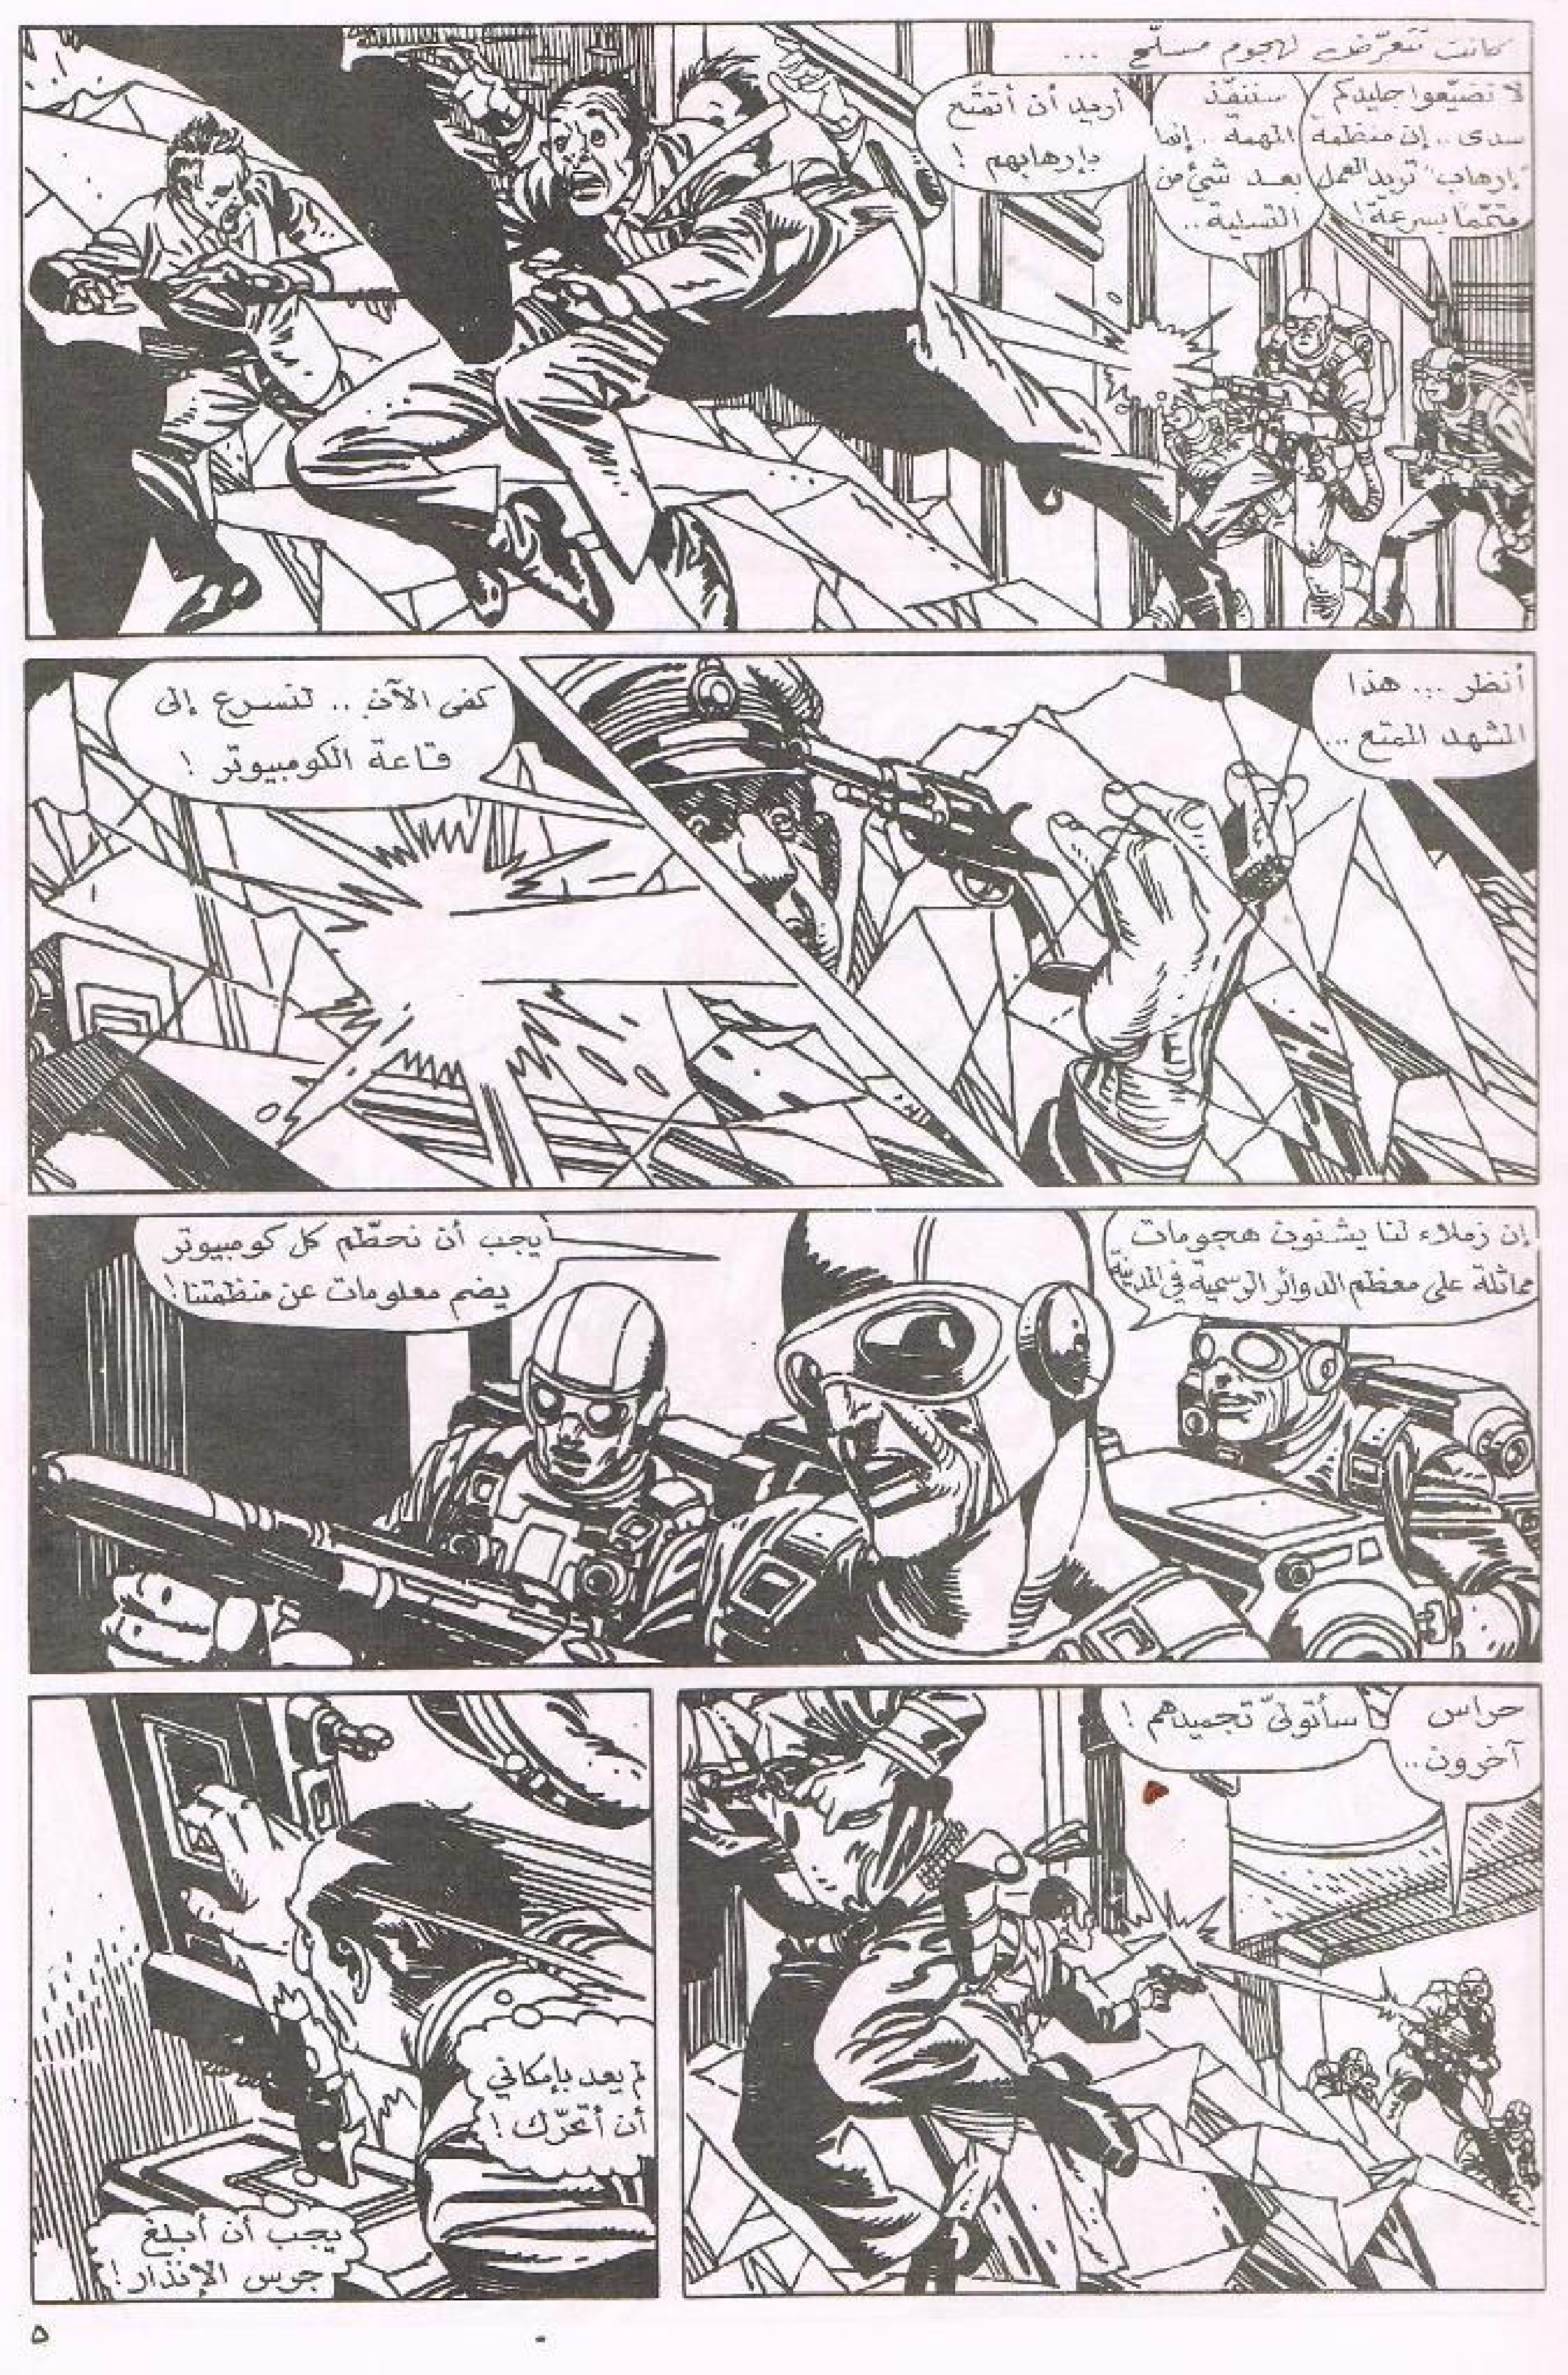 كانت تتعرّض لهجوم مسلّح ...
لا تضيّعوا جليدكم
سدى .. إن منظمة
"إرهاب" تريد العمل
متمّمًا بسرعة!
سننفّذ
المهمة .. إنما
بعد شيء من
التسلية ..
أريد أن أتمتّع
بإرهابهم !
أنظر ... هذا
المشهد الممتع ...
كفى الآن .. لنسرع إلى
قاعة الكومبيوتر !
إن زملاء لنا يشنون هجومات
مماثلة على معظم الدوائر الرسمية في المدينة
يجب أن نحطّم كل كومبيوتر
يضم معلومات عن منظمتنا!
حراس
آخرون ..
سأتولّى تجميدهم !
لم يعد بإمكاني
أن أتحرّك !
يجب أن أبلغ
جرس الإنذار!
٥